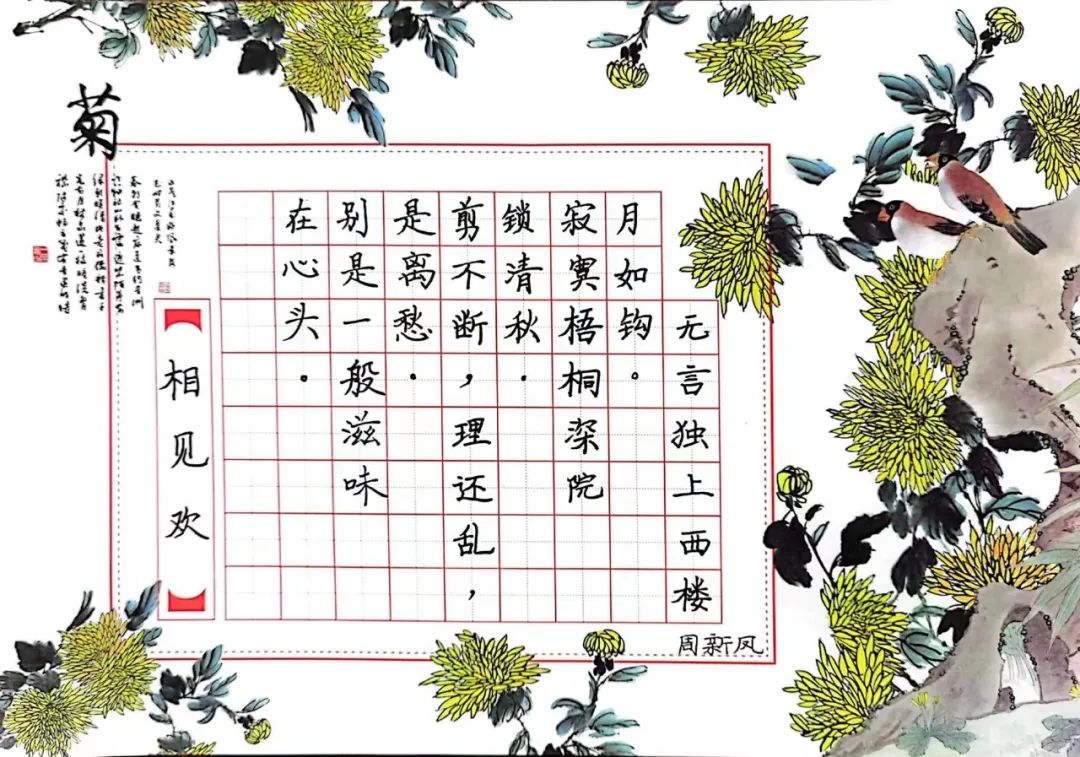 菊
相见欢
无言独上西楼
月如钩。
寂寞梧桐深院
锁清秋。
剪不断，理还乱，
是离愁。
别是一般滋味
在心头。
周新凤